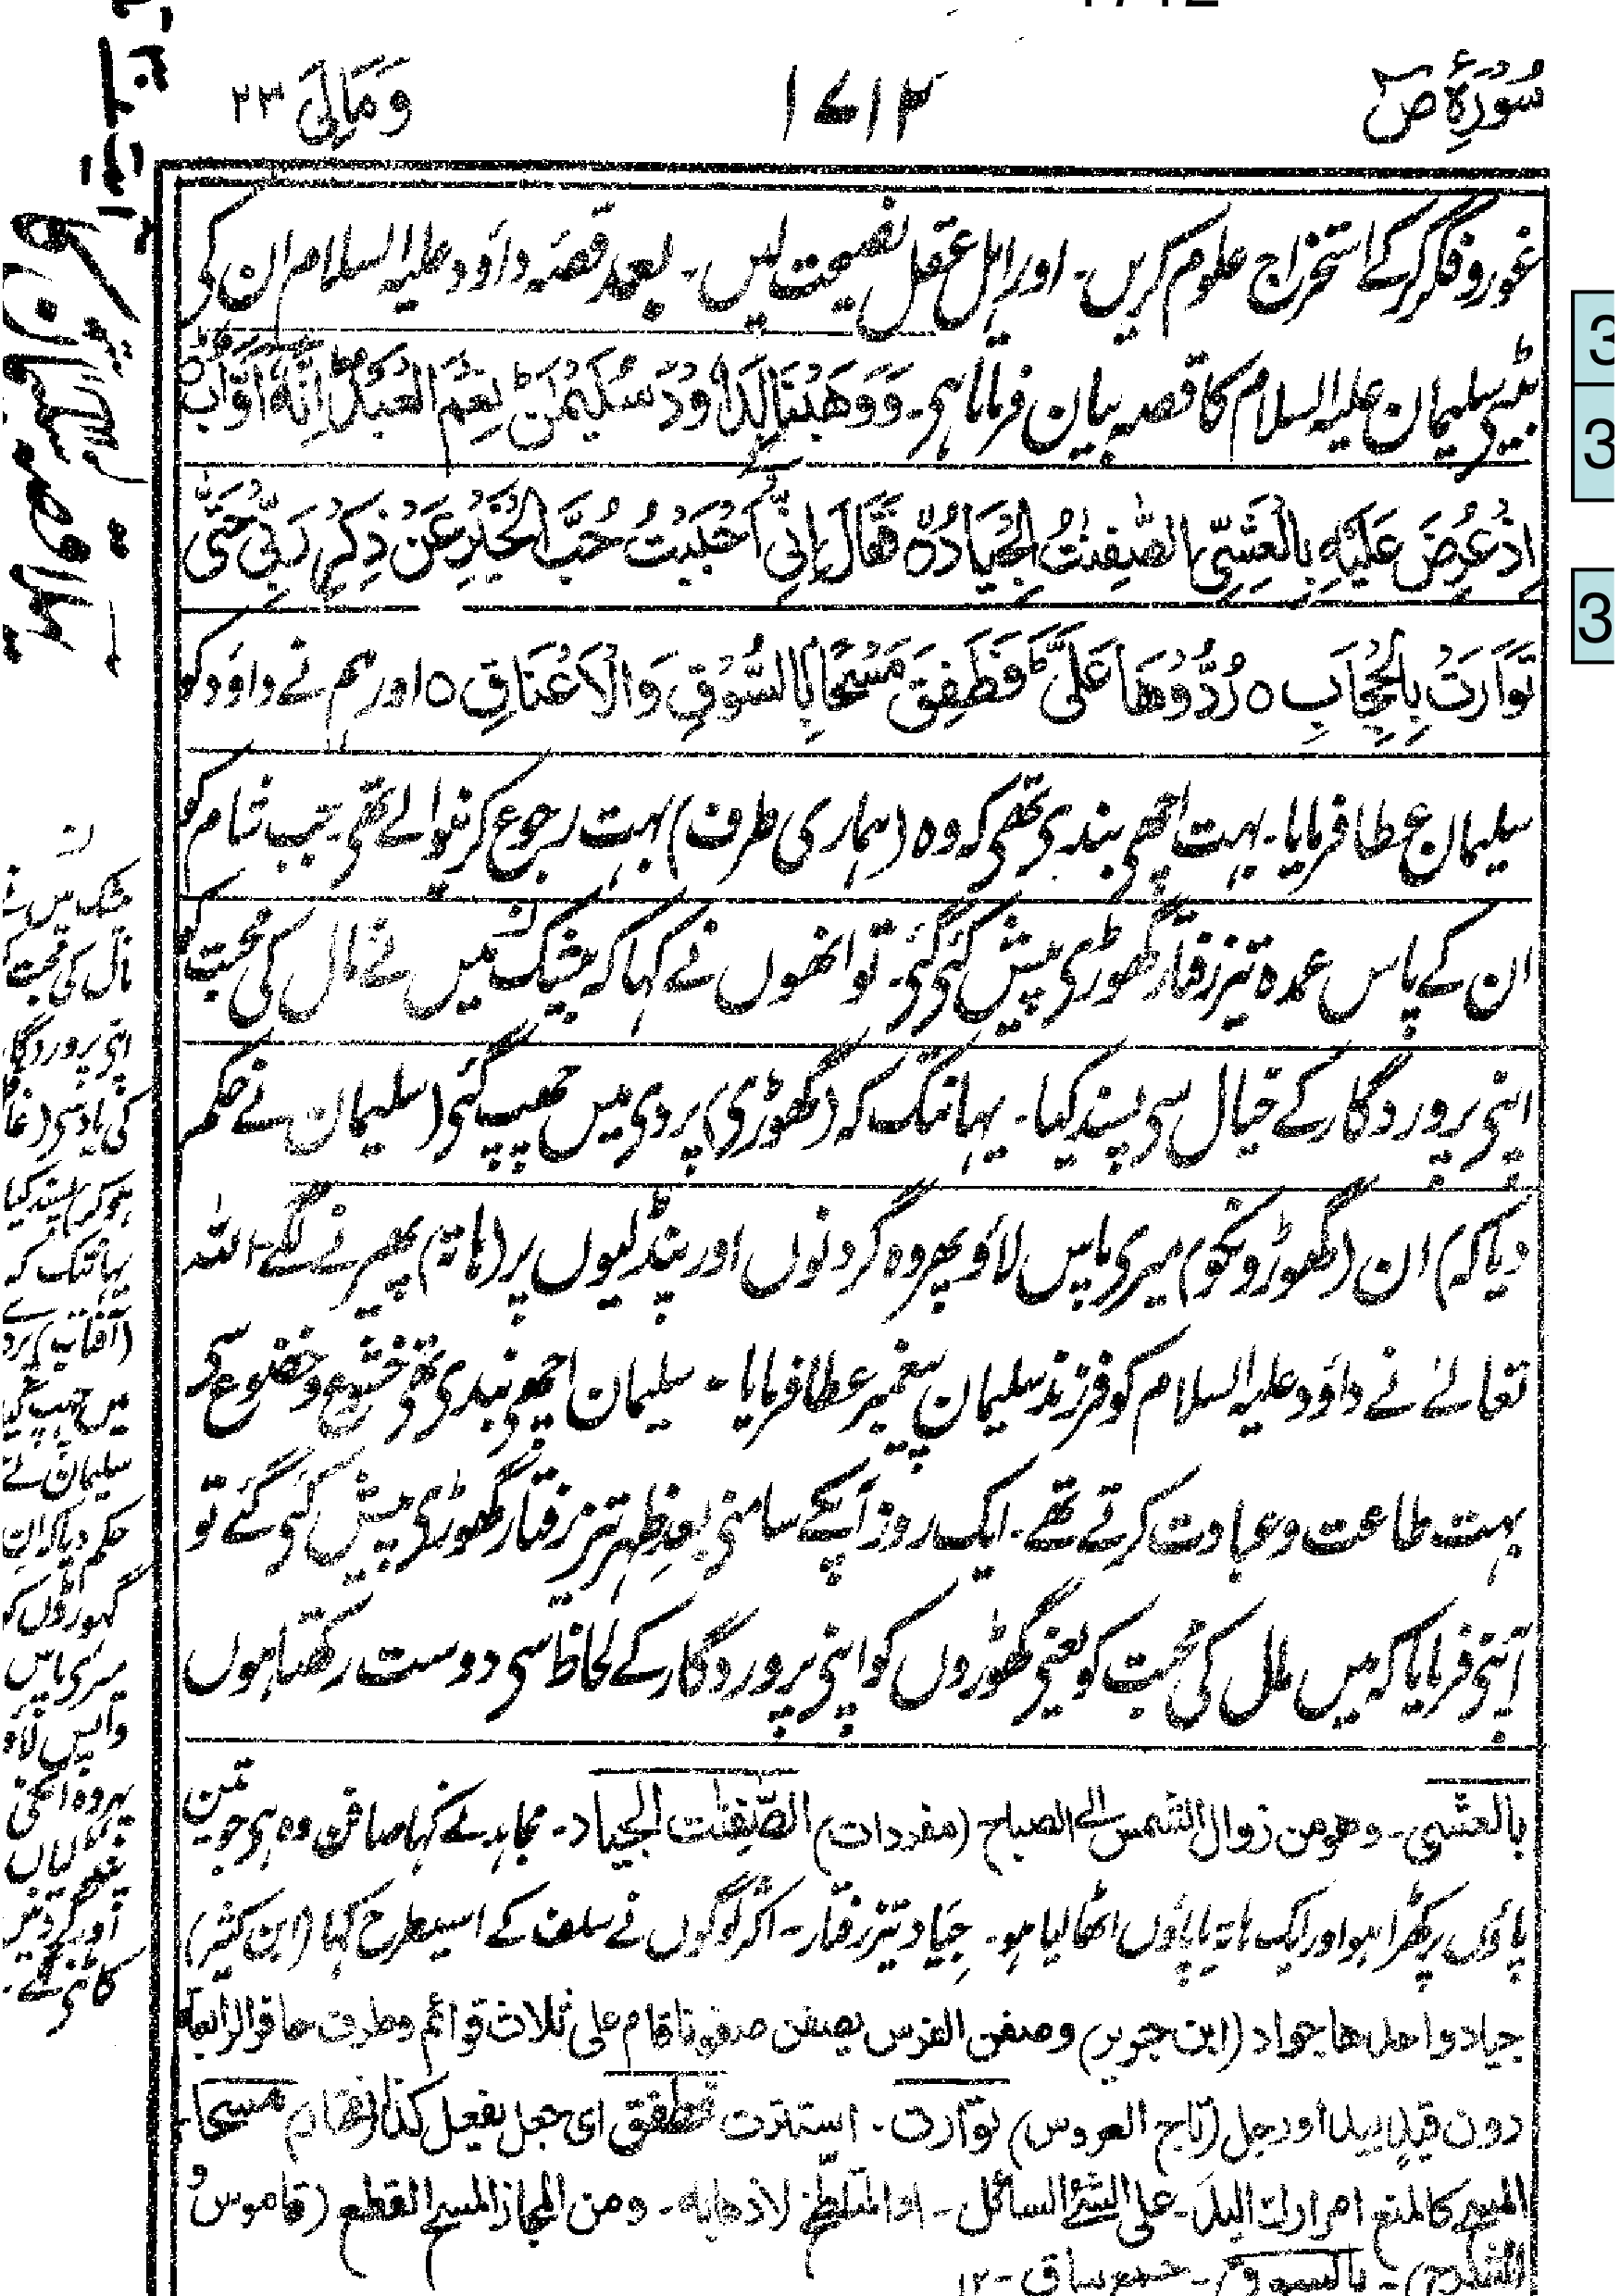 سُوْرَۃُ صٓ
۱۷۱۲
وَمَالِیَ ۲۳
غور و فکر کر کے استخراج علوم کریں۔ اور اہل عقل نصیحت لیں۔ بعد قصۂ داؤد علیہ السلام ان کی
بیٹی سلیمان علیہ السلام کا قصہ بیان فرماتا ہی۔ وَوَهَبْنَا لِدَاوٗدَ سُلَيْمٰنَ ؕ نِعْمَ الْعَبْدُ ؕ اِنَّهٗۤ اَوَّابٌ ؕ
اِذْ عُرِضَ عَلَيْهِ بِالْعَشِيِّ الصّٰفِنٰتُ الْجِيَادُ ۙ فَقَالَ اِنِّيْۤ اَحْبَبْتُ حُبَّ الْخَيْرِ عَنْ ذِكْرِ رَبِّيْ حَتّٰى
تَوَارَتْ بِالْحِجَابِ ○ رُدُّوْهَا عَلَيَّ ؕ فَطَفِقَ مَسْحًا بِالسُّوْقِ وَالْاَعْنَاقِ ○ اور ہم نے داؤد کو
سلیمان عطا فرمایا۔ بہت اچھی بندی تھی کہ وہ (ہماری طرف) بہت رجوع کرنیوالے تھی۔ جب شام کو
ان کے پاس عمدہ تیز رفتار گھوڑی پیش کئی گئی۔ تو انھوں نے کہا کہ بیشک میں نے مال کی محبت کو
اپنی پروردگار کے خیال سی پسند کیا۔ یہانتک کہ (گھوڑی) پردی میں چھپ گئی (سلیمان نے حکم
دیا کہ) ان (گھوڑونکو) میری پاس لاؤ پھر وہ گردنوں اور پنڈلیوں پر (ہاتہ) پھیرنے لگے۔ اللہ
تعالےٰ نے داؤد علیہ السلام کو فرزند سلیمان پیغمبر عطا فرمایا۔ سلیمان اچھی بندی تھی خشوع و خضوع سی
بہت طاعت و عبادت کرتے تھے۔ ایک روز آپکے سامنی بعدِ ظہر تیز رفتار گھوڑی پیش کئی گئے تو
آپنی فرمایا کہ میں مال کی محبت کو یعنی گھوڑوں کو اپنی پروردگار کے لحاظ سی دوست رکھتا ہوں
بالعشی۔ وھو من زوال الشمس الے الصباح (مفردات) الصّٰفِنٰت الجیاد۔ مجاہد نے کہا صافن وہ ہی جو تین
پاؤں پر کھڑا ہو اور ایک ہاتہ یا پاؤں اٹھا لیا ہو۔ جِیَاد تیز رفتار۔ اکثر لوگوں نے سلف کے اسیطرح کہا (ابن کثیر)
جیاد واحدھا جواد (ابن جریر) وصفن الفرس یصفن صفونا قام علی ثلاث قوائم وطرف حافر الرابعۃ
دون قید بید او رجل (تاج العروس) توارت۔ استترت فطفق ای جعل یفعل کذا مسحا۔
المسح کالمنع امرارك الید۔ علی الشئ السائل۔ او المتلطخ لاذھابہ۔ ومن المجاز المسح القطع (قاموس و
الشرح)۔ بالسوق۔ جمع ساق۔ ۱۲
بیشک میں نے
مال کی محبت کو
اپنی پروردگار
کی یاد سی (غافل
ہو کر) پسند کیا
یہانتک کہ
(آفتاب) پردے
میں چھپ گیا
سلیمان نے
حکم دیا کہ ان
گھوڑوں کو
میری پاس
واپس لاؤ
پھر وہ انکی
پنڈلیاں
اور گردنیں
کاٹنی لگے۔